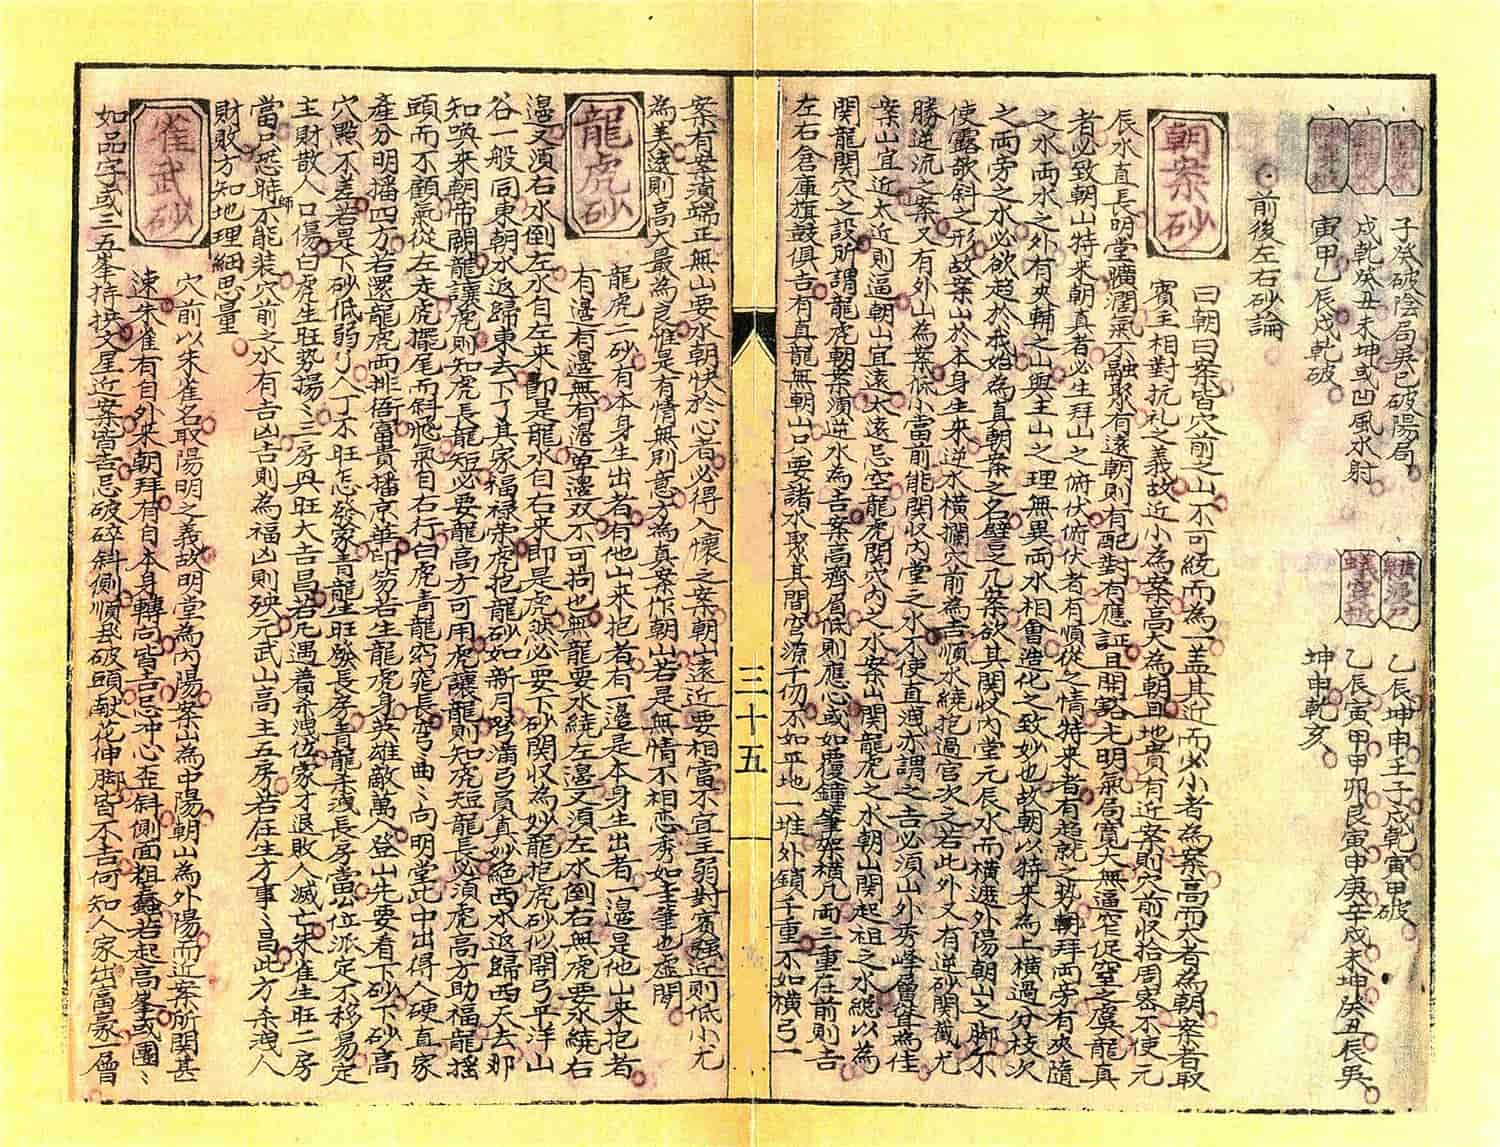 子癸破陰局巽巳破陽局
乙辰坤申壬子戌乾寅甲破
戌乾癸丑未坤或凹風水射
乙辰寅甲甲卯艮寅申庚辛戌未坤癸丑辰巽
寅甲乙辰戌乾破
坤申乾亥
前後左右砂論
朝案砂
曰朝曰案皆穴前之山不可統而為一蓋其近而必小者為案高而大者為朝案者取
賓主相對抗礼之義故近小為案高大為朝且地貴有近案則穴前收拾周密不使元
辰水直長明堂曠濶氣不融聚有遠朝則有配對有應証且開豁光明氣局寬大無逼窄促窒之虞龍真
者必致朝山特來朝真者必生拜山之俯伏俯伏者有順從之情特來者有趨就之勢朝拜兩旁有夾隨
之水兩水之外有夾輔之山與主山之理無異兩水相會造化之致妙也故朝以特來為上橫過分枝次
之兩旁之水必欲趋於我始為真朝案之名譬言几案欲其関收內堂元辰水而橫遮外陽朝山之脚不
使露欹斜之形故案山於本身生來逆水橫攔穴前為吉順水繞抱過宮次之若此外又有逆砂関截尤
勝逆流之案又有外山為案低小當前能関收內堂之水不使直洩亦謂之吉必須山外秀峰層聳為佳
案山宜近太近則逼朝山宜遠太遠忌空龍虎関穴內之水案山関龍虎之水朝山関起祖之水總以為
関龍関穴之設所謂龍虎朝案湏逆水為吉案高齊眉低則應心或如覆鐘筆架橫几兩三重在前則吉
左右倉庫旗鼓俱吉有真龍無朝山只要諸水聚其間穹源千仞不如平地一堆外鎖千重不如橫弓一
三十五
案有案湏端正無山要水朝快於心者必得入懷之案朝山遠近要相當不宜主弱對賓強近則低小尤
為美遠則高大最為良惟是有情無則意方為真案作朝山若是無情不相恋秀如圭筆也虛閒
龍虎砂
龍虎二砂有本身生出者有他山來抱者有一邉是本身生出者一邉是他山來抱者
有邉有邉無有邉單邉双不可拘也無龍要水繞左邉又湏左水倒右無虎要水繞右
邉又湏右水倒左水自左來即是龍水自右來即是虎然必要下砂関収為妙龍抱虎砂似開弓平洋山
谷一般同東朝水返歸東去下了其家福禄宗虎抱龍砂如新月彎滿弓員真妙絕西水返歸西天去那
知喚來朝帝闕龍讓虎則知虎長龍短必要龍高方可用虎讓龍則知虎短龍長必須虎高方助福龍揺
頭而不顧氣從左走虎擺尾而斜飛氣自右行白虎青龍窈窕長弯曲〻向明堂此中出得人硬直家
產分明播四方若還龍虎両排衙富貴播京華印笏若生龍虎身英雄敵萬人登山先要看下砂下砂高
穴點不差若是下砂低弱丿人丁不旺怎發家青龍生旺發長房青龍柔洩長房當公位派定不移易定
主財散人口傷白虎生旺势揚〻三房興旺大吉昌若凢遇着柔洩位家才退敗人滅亡朱雀生旺二房
當只恐時師不能装穴前之水有吉凶吉則為福凶則殃元武山高主五房若在生方事〻昌此方柔洩人
財敗方知地理細思量
雀武砂
穴前以朱雀名取陽明之義故明堂為內陽案山為中陽朝山為外陽而近案所関甚
速朱雀有自外來朝拜有自本身轉向皆吉忌冲心歪斜側面粗蠢若起高峯或團〻
如品字或三五峯持拱文星近案皆吉忌破碎斜側順飛破頭献花伸脚皆不吉何知人家出富豪一層